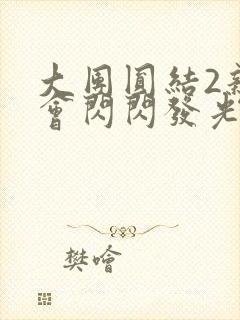 大團圓結2
會閃閃發光
樊噲